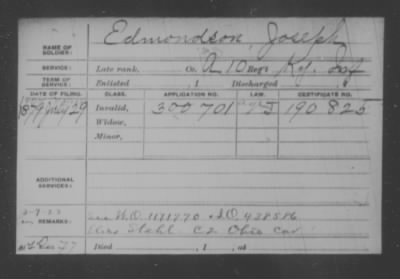 NAME OF SOLDIER: Edmondson, Joseph
SERVICE: Late rank, Co. A 10 Reg't Ky. Inf
TERM OF SERVICE: Enlisted , 1 Discharged , 1
DATE OF FILING. CLASS. APPLICATION NO. LAW. CERTIFICATE NO.
1879 July 29 Invalid, 300 701 190 825
Widow,
Minor,
ADDITIONAL SERVICES:
REMARKS: W.O. 1171770 I.O. 428586
Stahl C2 Ohio Cav
Died , 1 , at